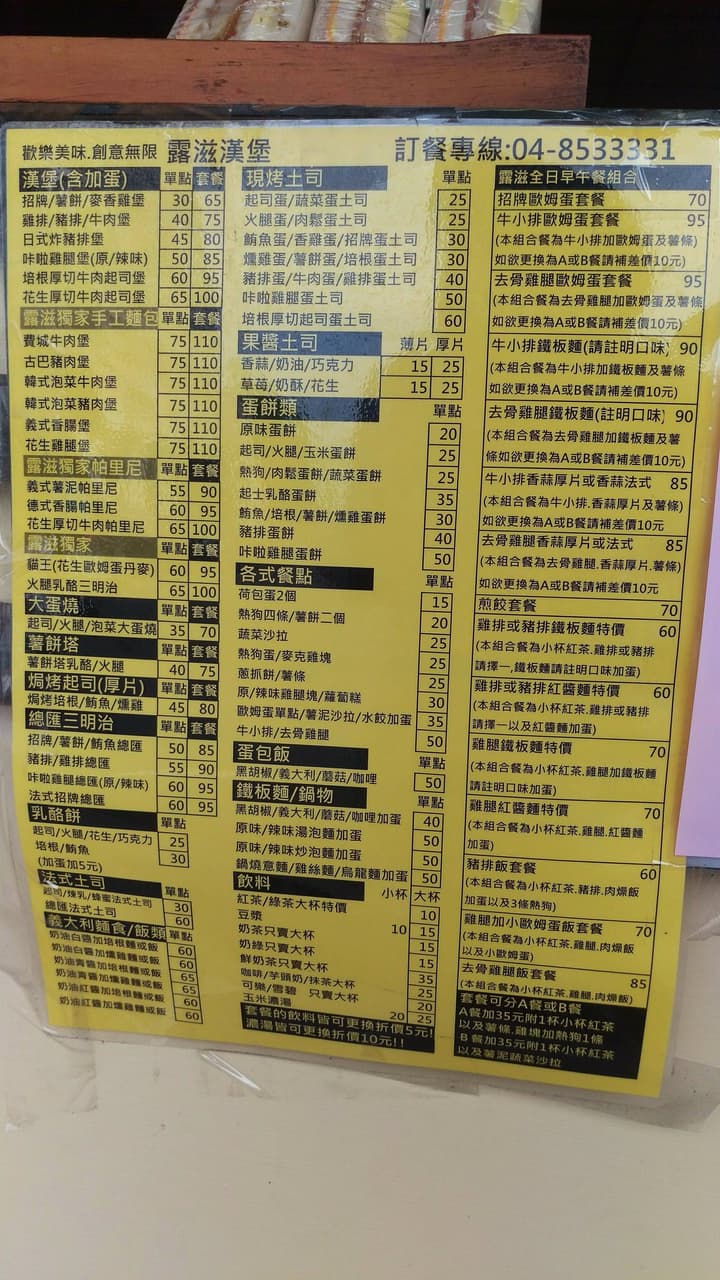 歡樂美味.創意無限 露滋漢堡 訂餐專線:04-8533331
漢堡(含加蛋) 單點 套餐
招牌/薯餅/麥香雞堡 30 65
雞排/豬排/牛肉堡 40 75
日式炸豬排堡 45 80
咔啦雞腿堡(原/辣味) 50 85
培根厚切牛肉起司堡 60 95
花生厚切牛肉起司堡 65 100
露滋獨家手工麵包 單點 套餐
費城牛肉堡 75 110
古巴豬肉堡 75 110
韓式泡菜牛肉堡 75 110
韓式泡菜豬肉堡 75 110
義式香腸堡 75 110
花生雞腿堡 75 110
露滋獨家帕里尼 單點 套餐
義式薯泥帕里尼 55 90
德式香腸帕里尼 60 95
花生厚切牛肉帕里尼 65 100
露滋獨家 單點 套餐
貓王(花生歐姆蛋丹麥) 60 95
火腿乳酪三明治 65 100
大蛋燒 單點 套餐
起司/火腿/泡菜大蛋燒 35 70
薯餅塔 單點 套餐
薯餅塔乳酪/火腿 40 75
焗烤起司(厚片) 單點 套餐
焗烤培根/鮪魚/燻雞 45 80
總匯三明治 單點 套餐
招牌/薯餅/鮪魚總匯 50 85
豬排/雞排總匯 55 90
咔啦雞腿總匯(原/辣味) 60 95
法式招牌總匯 60 95
乳酪餅 單點
起司/火腿/花生/巧克力 25
培根/鮪魚 30
(加蛋加5元)
法式土司 單點
起司/煉乳/蜂蜜法式土司 30
總匯法式土司 60
義大利麵食/飯類 單點
奶油白醬加培根麵或飯 60
奶油白醬加燻雞麵或飯 60
奶油青醬加培根麵或飯 65
奶油青醬加燻雞麵或飯 65
奶油紅醬加培根麵或飯 60
奶油紅醬加燻雞麵或飯 60
現烤土司 單點
起司蛋/蔬菜蛋土司 25
火腿蛋/肉鬆蛋土司 25
鮪魚蛋/香雞蛋/招牌蛋土司 30
燻雞蛋/薯餅蛋/培根蛋土司 30
豬排蛋/牛肉蛋/雞排蛋土司 40
咔啦雞腿蛋土司 50
培根厚切起司蛋土司 60
果醬土司 薄片 厚片
香蒜/奶油/巧克力 15 25
草莓/奶酥/花生 15 25
蛋餅類 單點
原味蛋餅 20
起司/火腿/玉米蛋餅 25
熱狗/肉鬆蛋餅/蔬菜蛋餅 25
起士乳酪蛋餅 35
鮪魚/培根/薯餅/燻雞蛋餅 30
豬排蛋餅 40
咔啦雞腿蛋餅 50
各式餐點 單點
荷包蛋2個 15
熱狗四條/薯餅二個 20
蔬菜沙拉 25
熱狗蛋/麥克雞塊 25
蔥抓餅/薯條 25
原/辣味雞腿塊/蘿蔔糕 30
歐姆蛋單點/薯泥沙拉/水餃加蛋 35
牛小排/去骨雞腿 50
蛋包飯 單點
黑胡椒/義大利/蘑菇/咖哩 50
鐵板麵/鍋物 單點
黑胡椒/義大利/蘑菇/咖哩加蛋 40
原味/辣味湯泡麵加蛋 50
原味/辣味炒泡麵加蛋 50
鍋燒意麵/雞絲麵/烏龍麵加蛋 50
飲料 小杯 大杯
紅茶/綠茶大杯特價 10
豆漿 10 15
奶茶只賣大杯 15
奶綠只賣大杯 15
鮮奶茶只賣大杯 35
咖啡/芋頭奶/抹茶大杯 25
可樂/雪碧 只賣大杯 20
玉米濃湯 20 25
套餐的飲料皆可更換折價5元!
濃湯皆可更換折價10元!!
露滋全日早午餐組合
招牌歐姆蛋套餐 70
牛小排歐姆蛋套餐 95
(本組合餐為牛小排加歐姆蛋及薯條)
如欲更換為A或B餐請補差價10元)
去骨雞腿歐姆蛋套餐 95
(本組合餐為去骨雞腿加歐姆蛋及薯條
如欲更換為A或B餐請補差價10元)
牛小排鐵板麵(請註明口味) 90
(本組合餐為牛小排加鐵板麵及薯條
如欲更換為A或B餐請補差價10元)
去骨雞腿鐵板麵(註明口味) 90
(本組合餐為去骨雞腿加鐵板麵及薯
條如欲更換為A或B餐請補差價10元)
牛小排香蒜厚片或香蒜法式 85
(本組合餐為牛小排.香蒜厚片及薯條)
如欲更換為A或B餐請補差價10元
去骨雞腿香蒜厚片或法式 85
(本組合餐為去骨雞腿.香蒜厚片.薯條)
如欲更換為A或B餐請補差價10元
煎餃套餐 70
雞排或豬排鐵板麵特價 60
(本組合餐為小杯紅茶.雞排或豬排
請擇一,鐵板麵請註明口味加蛋)
雞排或豬排紅醬麵特價 60
(本組合餐為小杯紅茶.雞排或豬排
請擇一以及紅醬麵加蛋)
雞腿鐵板麵特價 70
(本組合餐為小杯紅茶.雞腿加鐵板麵
請註明口味加蛋)
雞腿紅醬麵特價 70
(本組合餐為小杯紅茶.雞腿.紅醬麵
加蛋)
豬排飯套餐 60
(本組合餐為小杯紅茶.豬排.肉燥飯
加蛋以及3條熱狗)
雞腿加小歐姆蛋飯套餐 70
(本組合餐為小杯紅茶.雞腿.肉燥飯
以及小歐姆蛋)
去骨雞腿飯套餐 85
(本組合餐為小杯紅茶.雞腿.肉燥飯)
套餐可分A餐或B餐
A餐加35元附1杯小杯紅茶
以及薯條.雞塊加熱狗1條
B餐加35元附1杯小杯紅茶
以及薯泥蔬菜沙拉